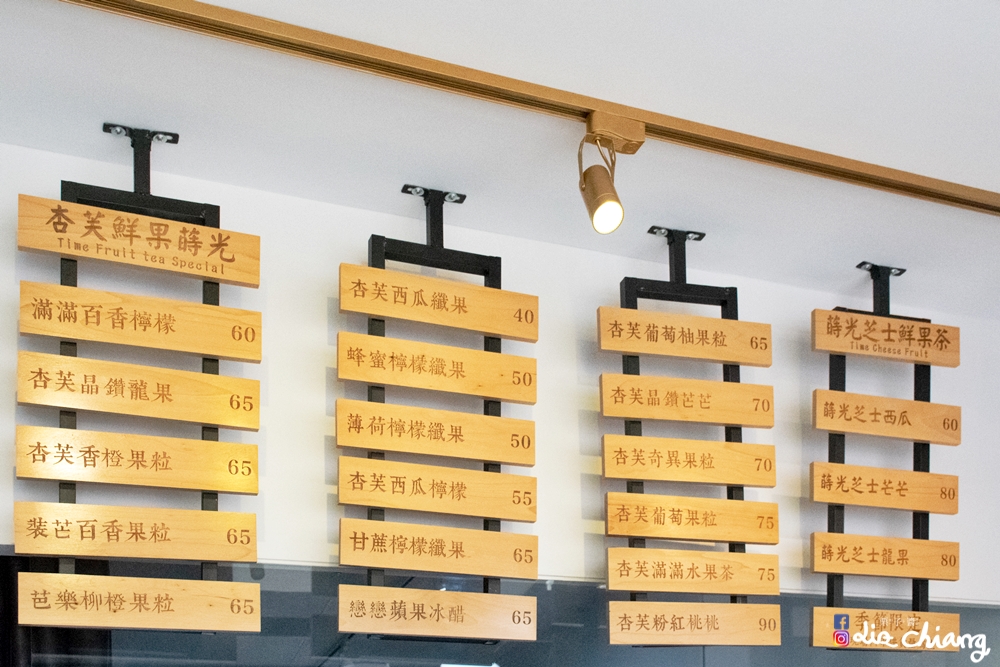 杏芙鮮果蒔光
Time Fruit tea Special
滿滿百香檸檬 60
杏芙晶鑽龍果 65
杏芙香橙果粒 65
裝芒百香果粒 65
芭樂柳橙果粒 65
杏芙西瓜纖果 40
蜂蜜檸檬纖果 50
薄荷檸檬纖果 50
杏芙西瓜檸檬 55
甘蔗檸檬纖果 65
戀戀蘋果冰醋 65
杏芙葡萄柚果粒 65
杏芙晶鑽芒芒 70
杏芙奇異果粒 70
杏芙葡萄果粒 75
杏芙滿滿水果茶 75
杏芙粉紅桃桃 90
蒔光芝士鮮果茶
Time Cheese Fruit
蒔光芝士西瓜 60
蒔光芝士芒芒 80
蒔光芝士龍果 80
季節限定
dio chiang